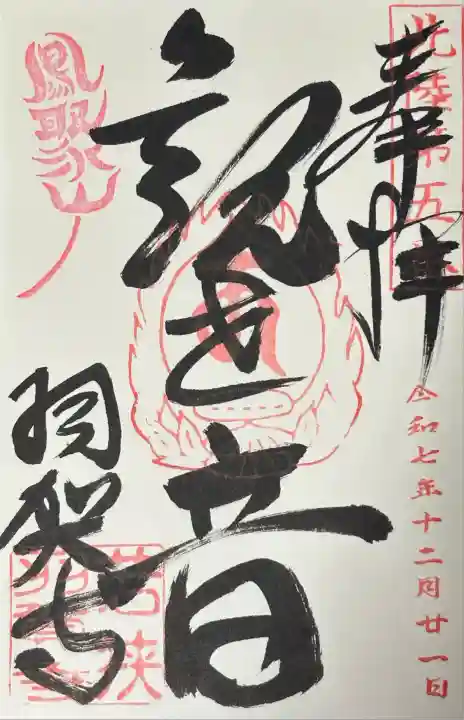 北陸第五番
奉拝
令和七年十二月廿一日
観世音
鳳聚山
羽賀寺
若狭
羽賀寺